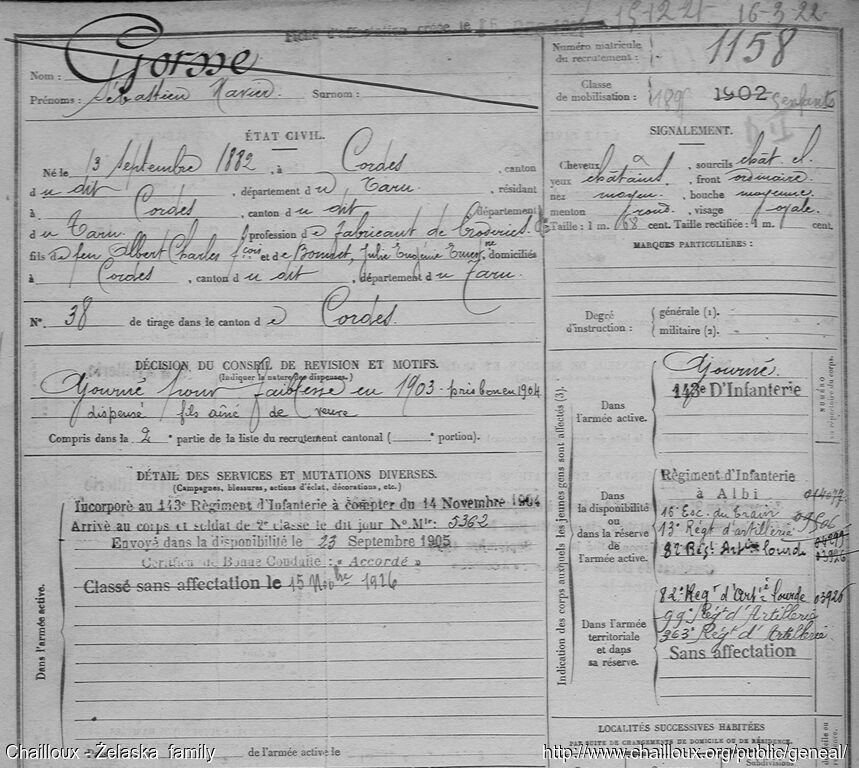 Fiche d'affectation créée le 15 15-12-21 16-3-22
Nom : Gorsse
Prénoms : Sébastien Xavier. Surnom :
Numéro matricule du recrutement : 1158
Classe de mobilisation : 189 1902 2 enfants
ÉTAT CIVIL.
Né le 13 Septembre 1882, à Cordes, canton
du dit, département du Tarn, résidant
à Cordes, canton du dit, département
du Tarn, profession de fabricant de broderies
fils de feu Albert Charles fçois et de Julie Eugénie Ernestine, domiciliés
à Cordes, canton du dit, département du Tarn.
N° 38 de tirage dans le canton de Cordes.
SIGNALEMENT.
Cheveux, sourcils chât. cl.
yeux châtains, front ordinaire
nez moyen, bouche moyenne
menton rond, visage ovale
Taille : 1 m. 68 cent. Taille rectifiée : 1 m. cent.
MARQUES PARTICULIÈRES :
Degré d'instruction : générale (1).
militaire (2).
DÉCISION DU CONSEIL DE REVISION ET MOTIFS.
(Indiquer la nature des dispenses.)
Ajourné pour faiblesse en 1903. pris bon en 1904
dispensé fils aîné de veuve
Compris dans la 2e partie de la liste du recrutement cantonal ( e portion).
DÉTAIL DES SERVICES ET MUTATIONS DIVERSES.
(Campagnes, blessures, actions d'éclat, décorations, etc.)
Dans l'armée active.
Incorporé au 143e Régiment d'Infanterie à compter du 14 Novembre 1904
Arrivé au corps et soldat de 2e classe le dit jour No Mle: 5362
Envoyé dans la disponibilité le 23 Septembre 1905
Certificat de Bonne Conduite : « Accordé »
Classé sans affectation le 15 Novbre 1926
de l'armée active le
Indication des corps auxquels les jeunes gens sont affectés (3).
NUMÉRO au répertoire du corps.
Dans l'armée active.
Ajourné.
143e D'Infanterie
Dans la disponibilité ou dans la réserve de l'armée active.
Régiment d'Infanterie
à Albi 014077
16e Esc. du Train 07506
13e Régt d'artillerie
82e Régt Artie lourde 03926
Dans l'armée territoriale et dans sa réserve.
82e Régt d'Artie lourde 03926
99e Régt d'Artillerie
363e Régt d'Artillerie
Sans affectation
LOCALITÉS SUCCESSIVES HABITÉES
PAR SUITE DE CHANGEMENTS DE DOMICILE OU DE RÉSIDENCE.
Subdivisions
Chailloux - Żelaska family
http://www.chailloux.org/public/geneal/